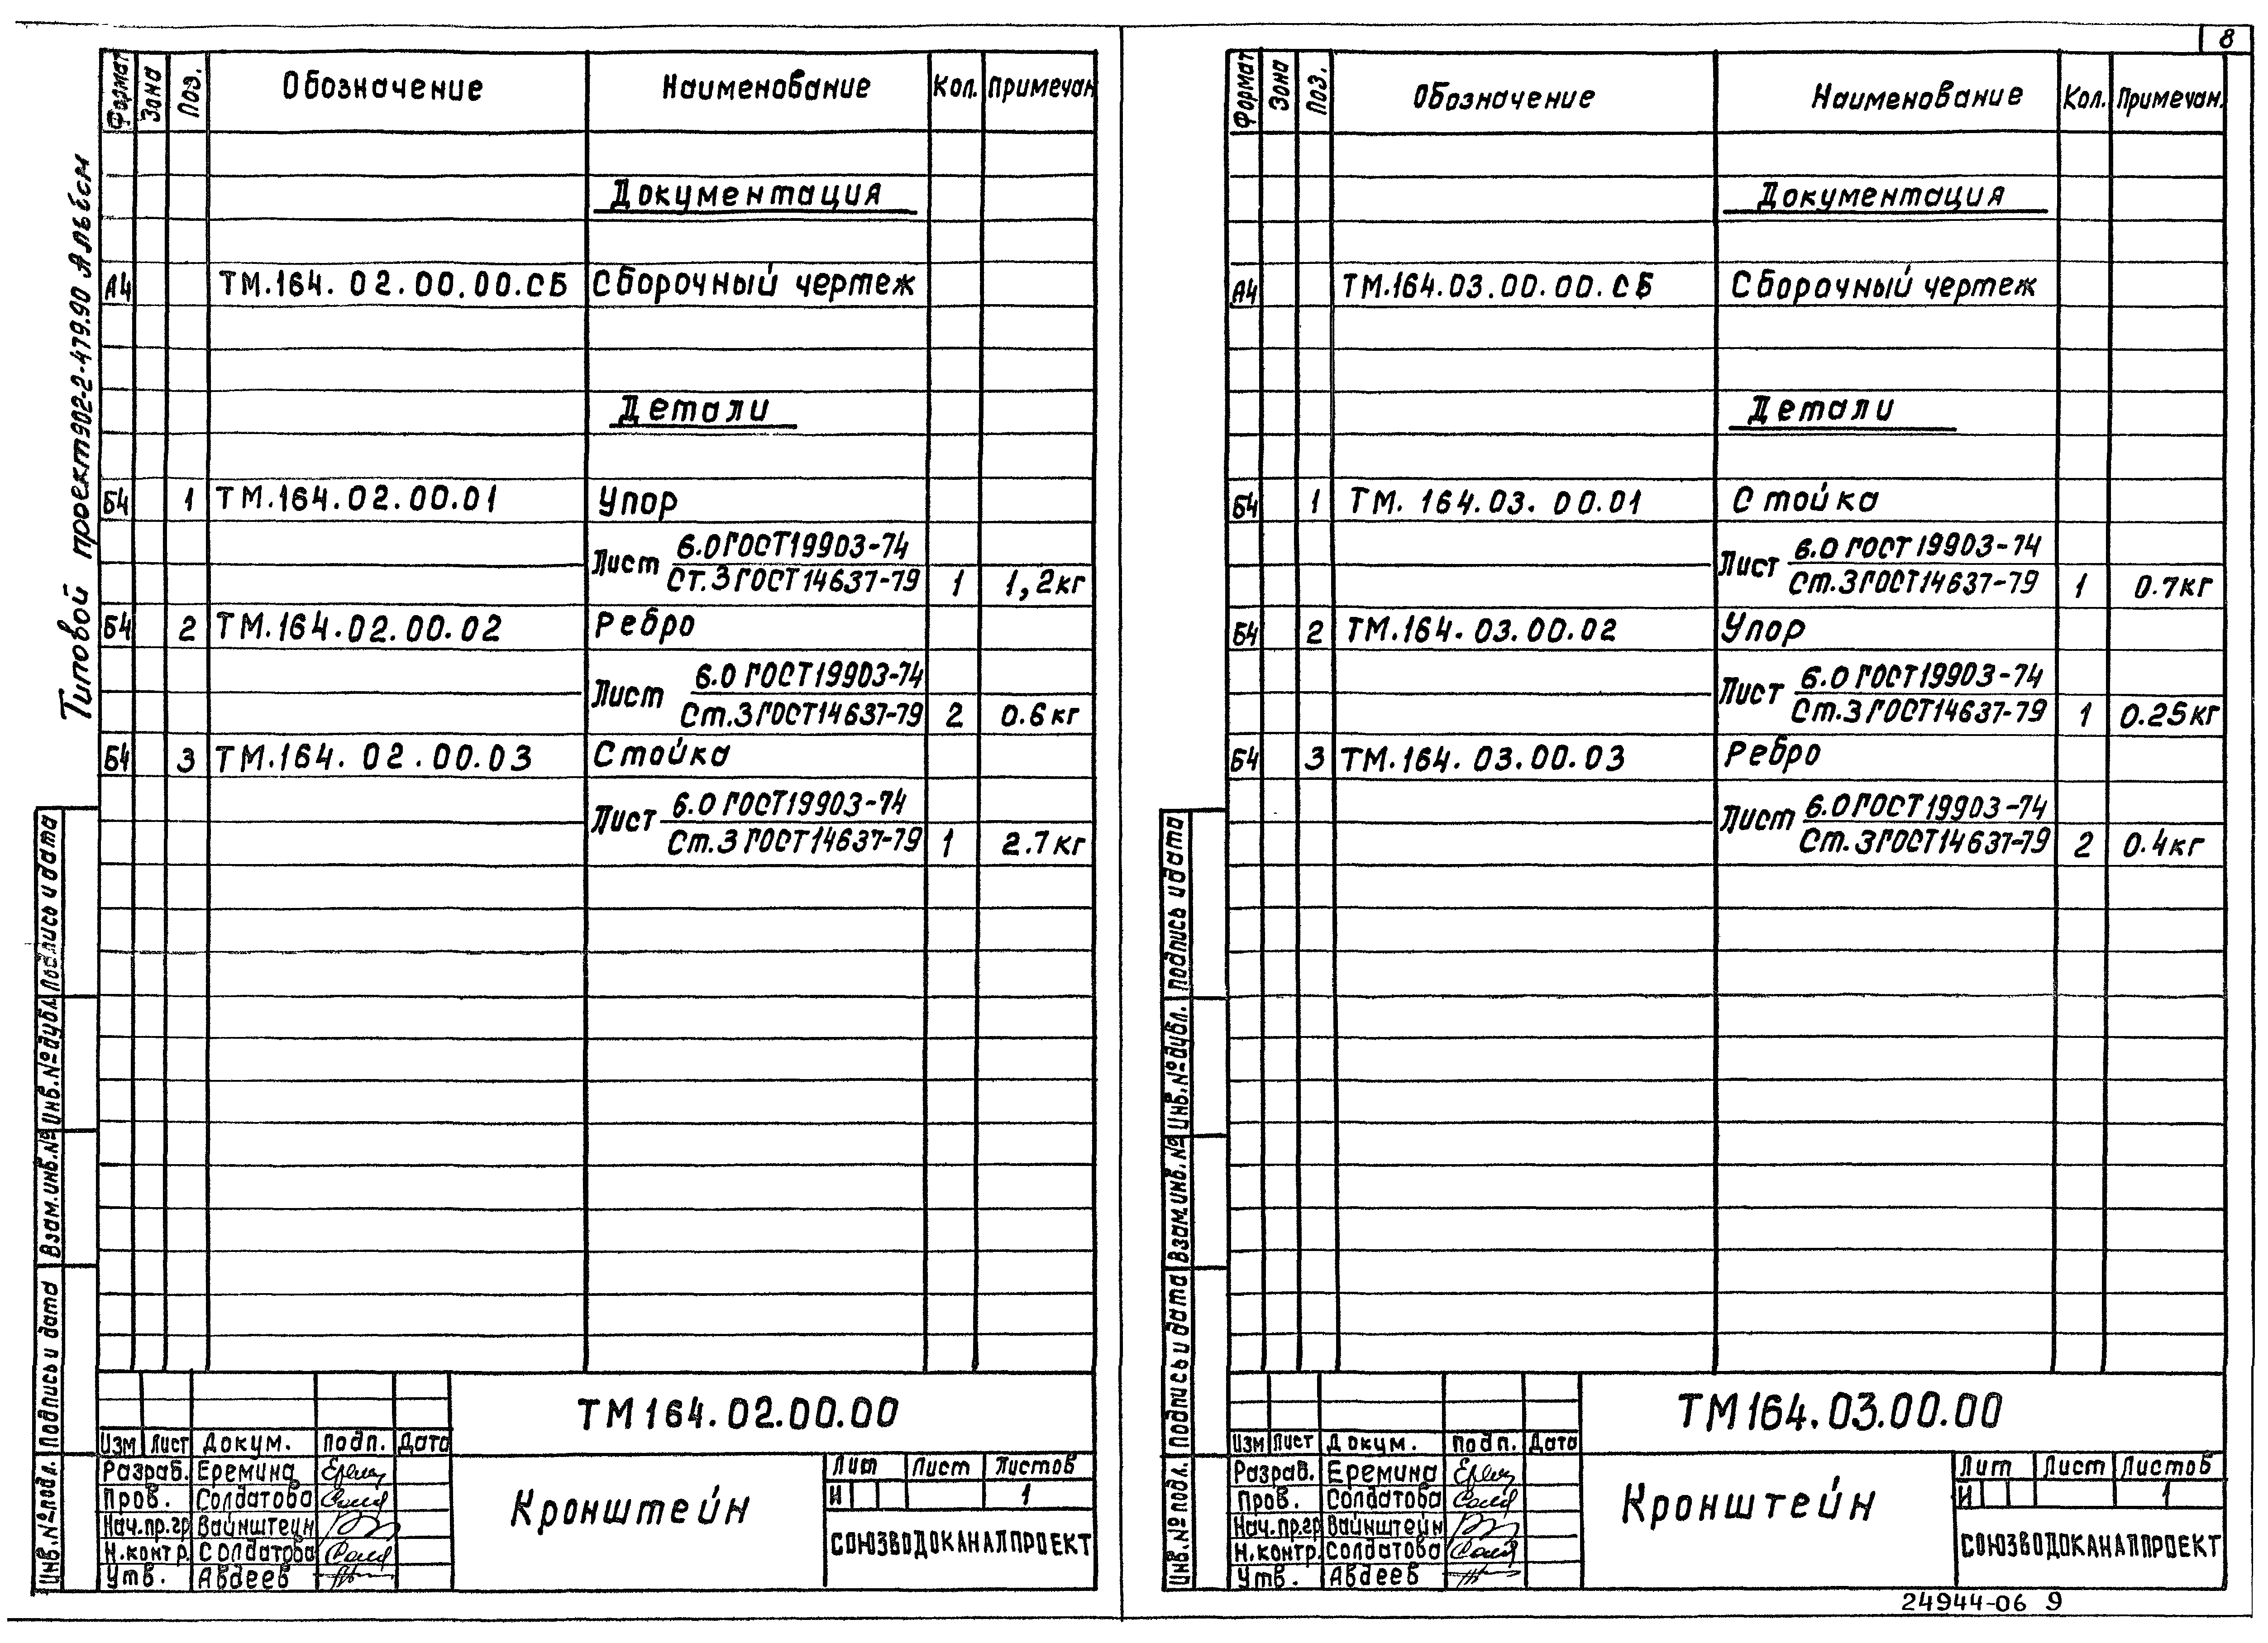 8
Типовой проект 902-2-479.90 Альбом
Формат Зона Поз. Обозначение Наименование Кол. Примечан
Документация
А4 ТМ.164.02.00.00.СБ Сборочный чертеж
Детали
Б4 1 ТМ.164.02.00.01 Упор
Лист 6.0 ГОСТ19903-74
Ст.3 ГОСТ14637-79 1 1,2кг
Б4 2 ТМ.164.02.00.02 Ребро
Лист 6.0 ГОСТ19903-74
Ст.3 ГОСТ14637-79 2 0.6кг
Б4 3 ТМ.164.02.00.03 Стойка
Лист 6.0 ГОСТ19903-74
Ст.3 ГОСТ14637-79 1 2.7кг
Инв.№подл. Подпись и дата Взам.инв.№ Инв.№дубл. Подпись и дата
ТМ164.02.00.00
Изм Лист Докум. Подп. Дата
Разраб. Еремина
Пров. Солдатова
Нач.пр.гр Вайнштейн
Н.контр. Солдатова
Утв. Авдеев
Кронштейн
Лит Лист Листов
И 1
СОЮЗВОДОКАНАЛПРОЕКТ
Формат Зона Поз. Обозначение Наименование Кол. Примечан.
Документация
А4 ТМ.164.03.00.00.СБ Сборочный чертеж
Детали
Б4 1 ТМ.164.03.00.01 Стойка
Лист 6.0 ГОСТ19903-74
Ст.3 ГОСТ14637-79 1 0.7кг
Б4 2 ТМ.164.03.00.02 Упор
Лист 6.0 ГОСТ19903-74
Ст.3 ГОСТ14637-79 1 0.25кг
Б4 3 ТМ.164.03.00.03 Ребро
Лист 6.0 ГОСТ19903-74
Ст.3 ГОСТ14637-79 2 0.4кг
Инв.№подл. Подпись и дата Взам.инв.№ Инв.№дубл. Подпись и дата
ТМ164.03.00.00
Изм Лист Докум. Подп. Дата
Разраб. Еремина
Пров. Солдатова
Нач.пр.гр Вайнштейн
Н.контр. Солдатова
Утв. Авдеев
Кронштейн
Лит Лист Листов
И 1
СОЮЗВОДОКАНАЛПРОЕКТ
24944-06 9